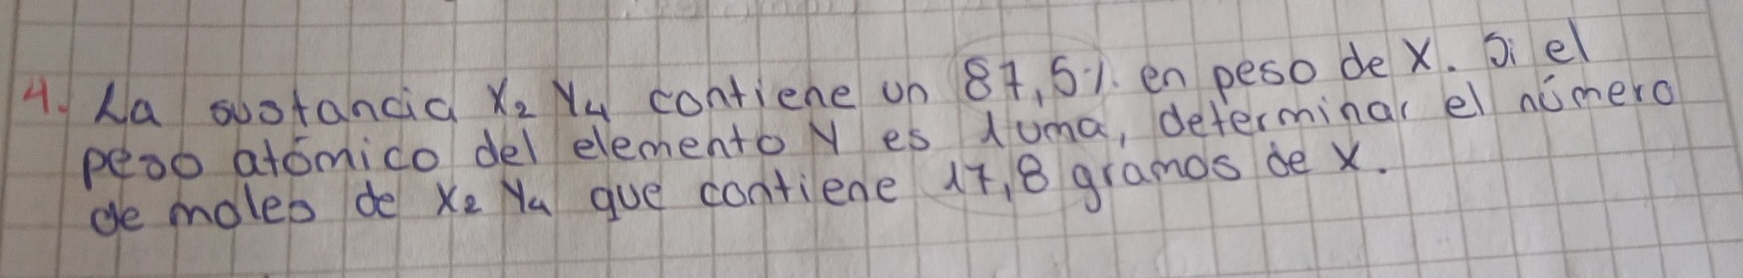 4. La sustancia X₂ Y₄ contiene un 87,5%. en peso de X. Si el
peso atómico del elemento Y es 1uma, determinar el número
de moles de X₂ Y₄ que contiene 17,8 gramos de X.